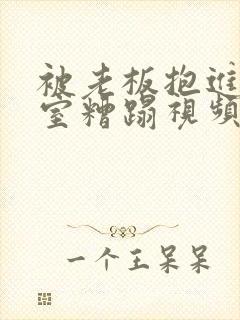 被老板抱进
室糟蹋視頻
一个王呆呆